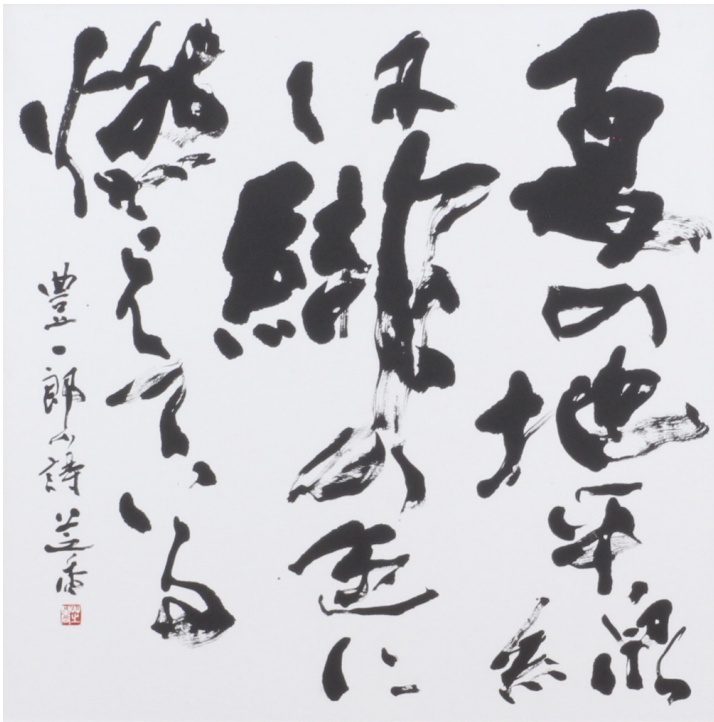 夏の地平線
は緋の色に
燃えている
豊一郎の詩 芝香